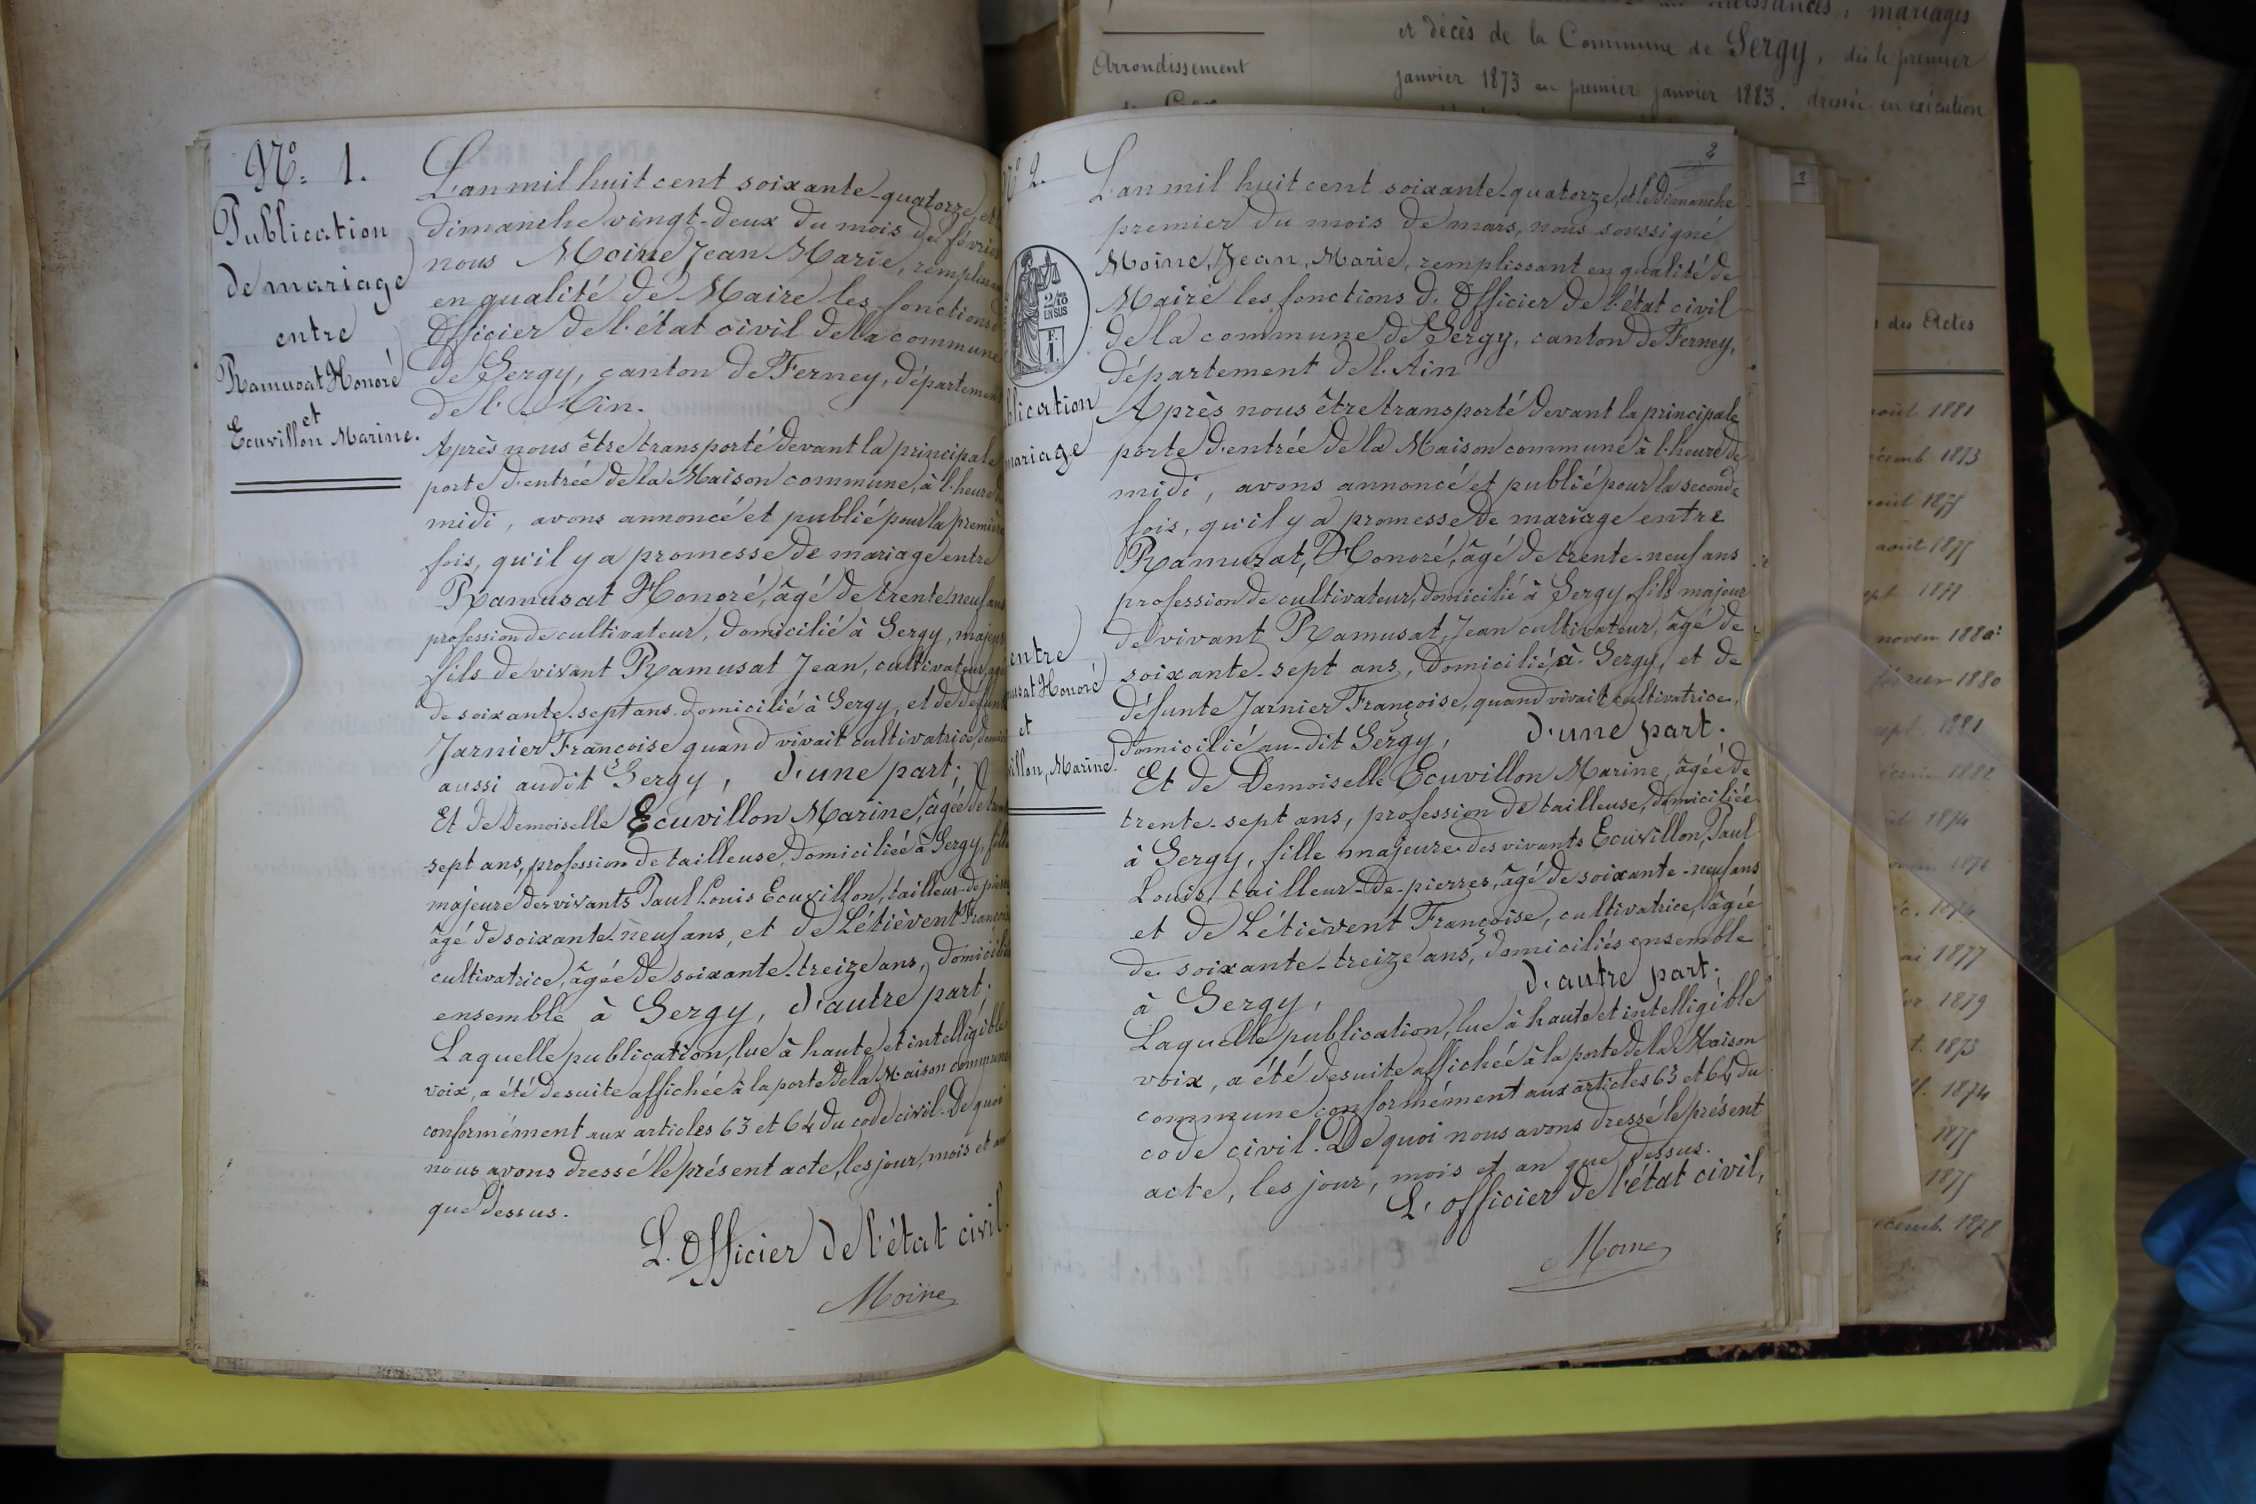 Nº 1.
Publication
de mariage
entre
Ramusat Honoré
et
Ecuvillon Marine.
L'an mil huit cent soixante-quatorze, et
dimanche vingt-deux du mois de février
nous Moine Jean Marie, remplissant
en qualité de Maire les fonctions d'
Officier de l'état civil de la commune
de Sergy, canton de Ferney, département
de l'Ain.
Après nous être transporté devant la principale
porte d'entrée de la Maison commune, à l'heure de
midi, avons annoncé et publié pour la première
fois, qu'il y a promesse de mariage entre
Ramusat Honoré, âgé de trente-neuf ans
profession de cultivateur, domicilié à Sergy, majeur
fils de vivant Ramusat Jean, cultivateur, âgé
de soixante-sept ans domicilié à Sergy, et de défunte
Jarnier Françoise quand vivait cultivatrice
aussi audit Sergy, d'une part;
Et de Demoiselle Ecuvillon Marine, âgée de trente
sept ans, profession de tailleuse, domiciliée à Sergy, fille
majeure des vivants Paul Louis Ecuvillon, tailleur-de-pierres
âgé de soixante-neuf ans, et de Létièvent Françoise
cultivatrice, âgée de soixante-treize ans, domiciliés
ensemble à Sergy, d'autre part.
Laquelle publication, lue à haute et intelligible
voix, a été desuite affichée à la porte de la Maison commune
conformément aux articles 63 et 64 du code civil. De quoi
nous avons dressé le présent acte, les jour, mois et an
que dessus.
L'Officier de l'état civil.
Moine
2
2.
2/10
EN SUS
F.
1.
blication
mariage
entre
usat Honoré
et
illon, Marine.
L'an mil huit cent soixante-quatorze, et le Dimanche
premier du mois de mars, nous soussigné
Moine, Jean, Marie, remplissant en qualité de
Maire les fonctions d'Officier de l'état civil
de la commune de Sergy, canton de Ferney,
département de l'Ain
Après nous être transporté devant la principale
porte d'entrée de la Maison commune à l'heure de
midi, avons annoncé et publié pour la seconde
fois, qu'il y a promesse de mariage entre
Ramuzat, Honoré, âgé de trente-neuf ans
profession de cultivateur, domicilié à Sergy, fils majeur
de vivant Ramusat, Jean cultivateur, âgé de
soixante-sept ans, domicilié, à Sergy, et de
défunte Jarnier Françoise, quand vivait cultivatrice,
domicilié au-dit Sergy, d'une part.
Et de Demoiselle Ecuvillon Marine, âgée de
trente-sept ans, profession de tailleuse, domiciliée
à Sergy, fille majeure des vivants Ecuvillon, Paul
Louis, tailleur-de-pierres, âgé de soixante-neuf ans
et de Létièvent Françoise, cultivatrice, âgée
de soixante-treize ans, domiciliés ensemble
à Sergy, d'autre part;
Laquelle publication, lue à haute et intelligible
voix, a été desuite affichée à la porte de la Maison
commune conformément aux articles 63 et 64 du
code civil. De quoi nous avons dressé le présent
acte, les jour, mois et an que dessus.
L'officier de l'état civil,
Moine
naissances, mariages
et décès de la Commune de Sergy, dès le premier
janvier 1873 au premier janvier 1883. dressée en exécution
Arrondissement
de Gex
des Actes
août 1881
décemb. 1873
août 1875
août 1875
sept. 1877
novem 1880
février 1880
sept. 1881
1882
1874
1874
ai 1877
1879
t. 1873
1874
1875
1875
écemb. 1878